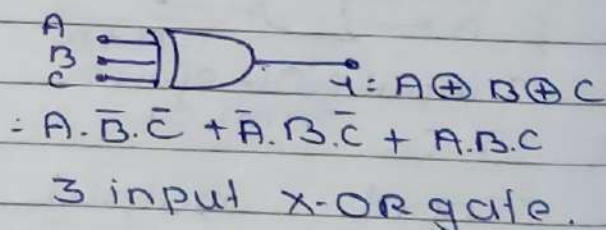 A
B
C
Y = A ⊕ B ⊕ C
= A.B̅.C̅ + A̅.B.C̅ + A.B.C
3 input X-OR gate.